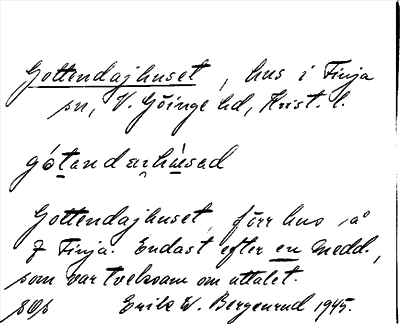 Gottendajhuset, hus i Finja
sn, V. Göinge hd, Krist. l.
gótandaɪhùsad
Gottendajhuset, förr hus å
7 Finja. Endast efter en medd.,
som var tveksam om uttalet.
Erik W. Bergenrud 1945.